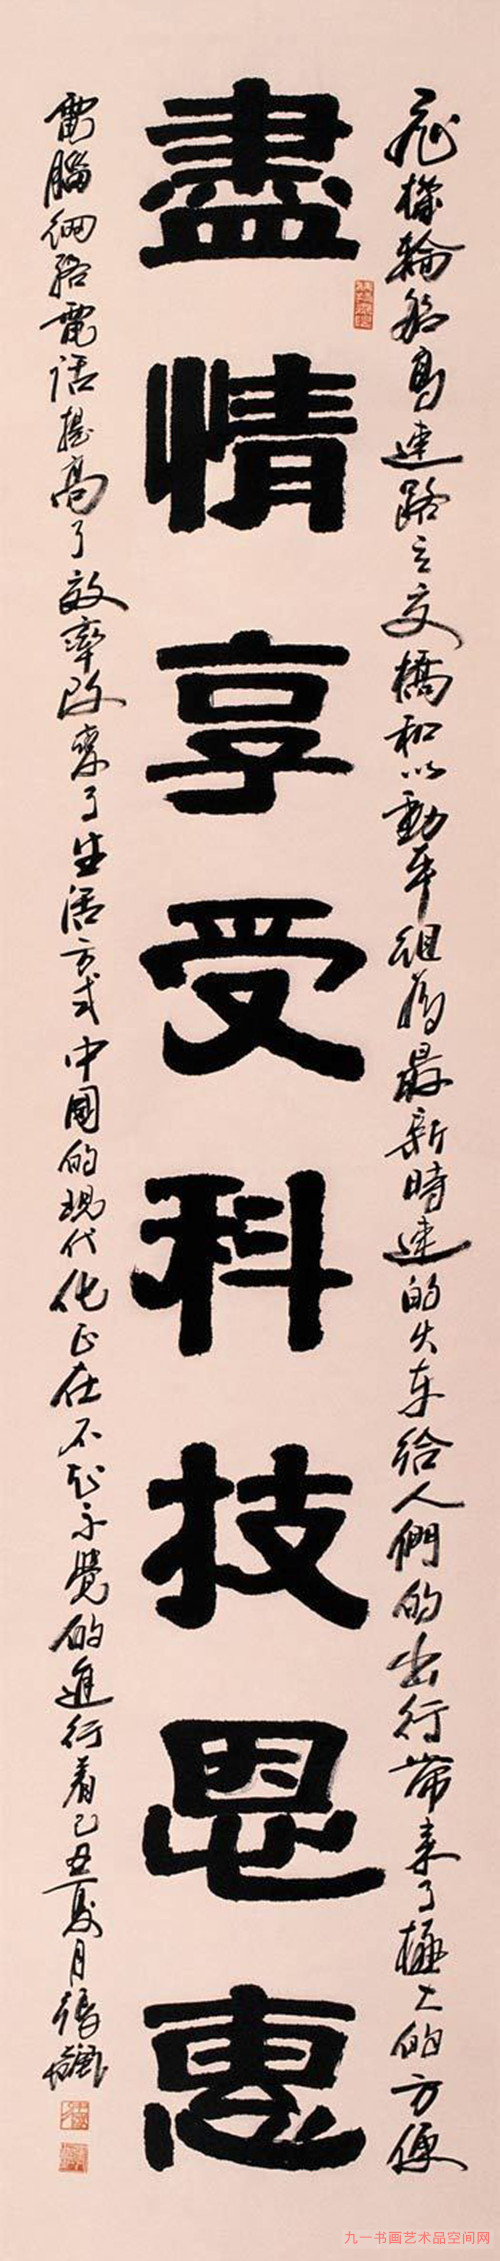 飛機輪船高速路立交橋和以動车組為最新時速的火车給人們的出行帶来了極大的方便
盡情享受科技恩惠
電腦網絡電话提高了效率改變了生活方式中國的現代化正在不知不覺的進行着己丑夏月張
九一书画艺术品空间网